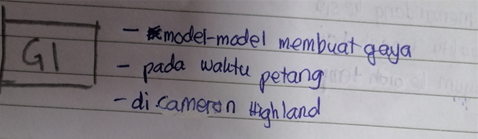 G1
- model-model membuat gaya
- pada waktu petang
- di cameron Highland